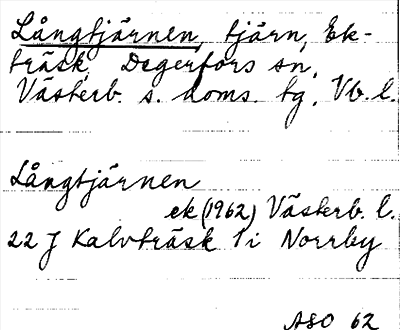 Långtjärnen, tjärn, Ek-
träsk, Degerfors sn,
Västerb. s. doms. tg, Vb. l.
Långtjärnen
ek (1962) Västerb. l.
22 J Kalvträsk 1 i Norrby
ASO 62